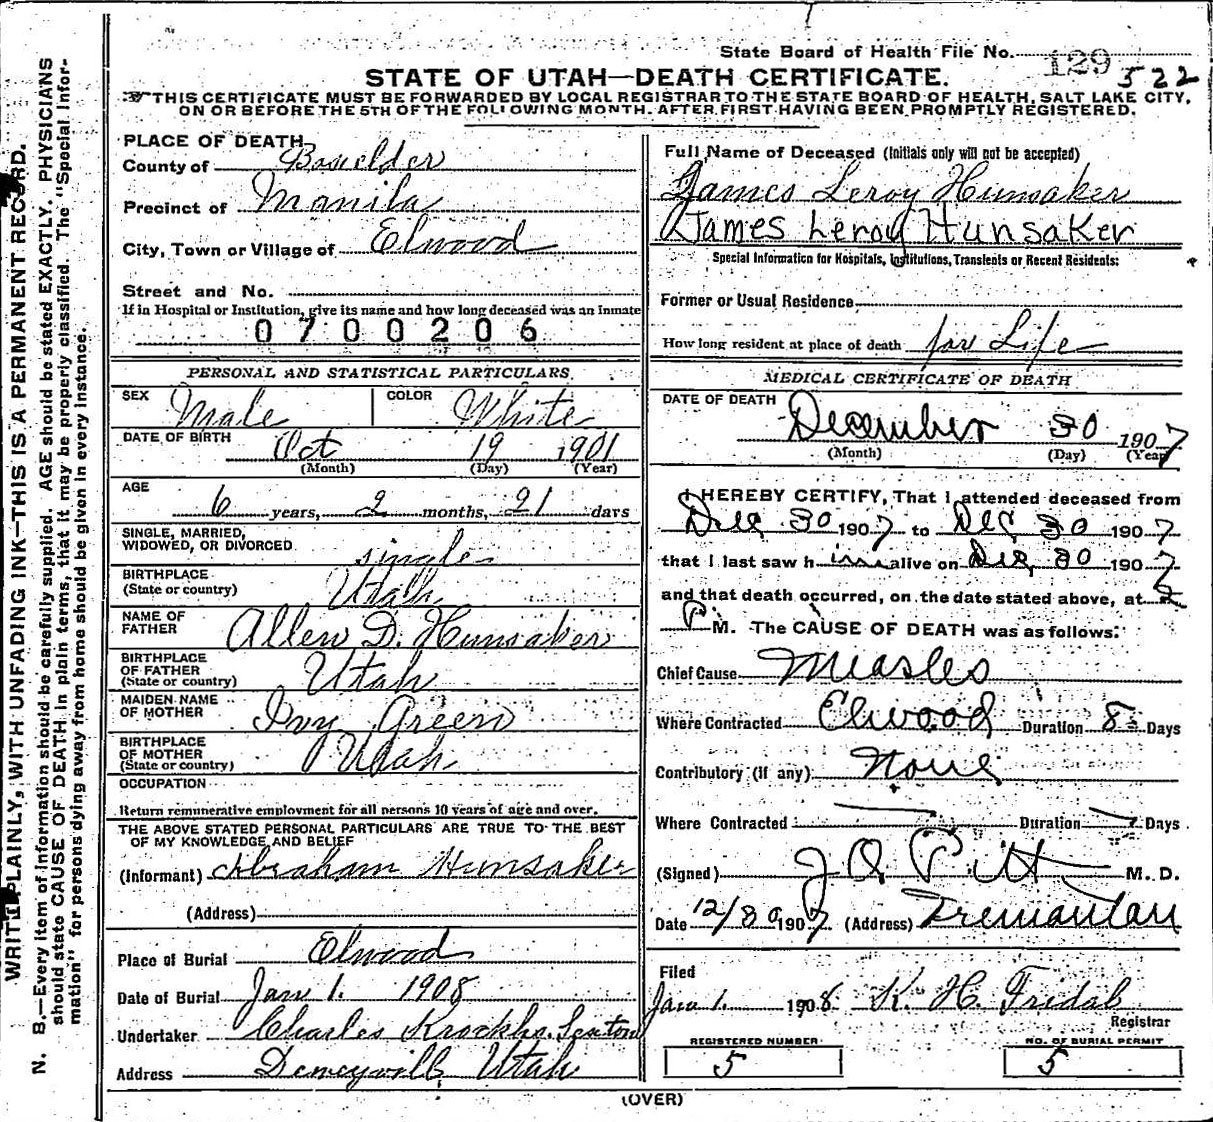 State Board of Health File No. 129 522
STATE OF UTAH—DEATH CERTIFICATE.
THIS CERTIFICATE MUST BE FORWARDED BY LOCAL REGISTRAR TO THE STATE BOARD OF HEALTH, SALT LAKE CITY,
ON OR BEFORE THE 5TH OF THE FOLLOWING MONTH, AFTER FIRST HAVING BEEN PROMPTLY REGISTERED.
WRITE PLAINLY, WITH UNFADING INK—THIS IS A PERMANENT RECORD.
N. B.—Every item of information should be carefully supplied. AGE should be stated EXACTLY. PHYSICIANS
should state CAUSE OF DEATH in plain terms, that it may be properly classified. The "Special Infor-
mation" for persons dying away from home should be given in every instance.
PLACE OF DEATH
County of Boxelder
Precinct of Manila
City, Town or Village of Elwood
Street and No.
If in Hospital or Institution, give its name and how long deceased was an Inmate
0700206
PERSONAL AND STATISTICAL PARTICULARS.
SEX Male COLOR White
DATE OF BIRTH Oct 19 1901
(Month) (Day) (Year)
AGE
6 years, 2 months, 21 days
SINGLE, MARRIED,
WIDOWED, OR DIVORCED single
BIRTHPLACE
(State or country) Utah
NAME OF
FATHER Allen D. Hunsaker
BIRTHPLACE
OF FATHER
(State or country) Utah
MAIDEN NAME
OF MOTHER Ivy Green
BIRTHPLACE
OF MOTHER
(State or country) Utah
OCCUPATION
Return remunerative employment for all persons 10 years of age and over.
THE ABOVE STATED PERSONAL PARTICULARS ARE TRUE TO THE BEST
OF MY KNOWLEDGE AND BELIEF
(Informant) Abraham Hunsaker
(Address)
Place of Burial Elwood
Date of Burial Jan 1. 1908
Undertaker Charles Sexton
Address Deweyvill, Utah
Full Name of Deceased (Initials only will not be accepted)
James Leroy Hunsaker
James Leroy Hunsaker
Special Information for Hospitals, Institutions, Transients or Recent Residents:
Former or Usual Residence
How long resident at place of death for Life
MEDICAL CERTIFICATE OF DEATH
DATE OF DEATH
December 30 1907
(Month) (Day) (Year)
I HEREBY CERTIFY, That I attended deceased from
Dec 30 1907 to Dec 30 1907
that I last saw him alive on Dec 30 1907
and that death occurred, on the date stated above, at 2
P M. The CAUSE OF DEATH was as follows:
Chief Cause Measles
Where Contracted Elwood Duration 8 Days
Contributory (if any) None
Where Contracted Duration Days
(Signed) M. D.
Date 12/30 1907 (Address) Tremonton
Filed
Jan 1. 1908 K. H. Fridal
Registrar
REGISTERED NUMBER NO. OF BURIAL PERMIT
5 5
(OVER)